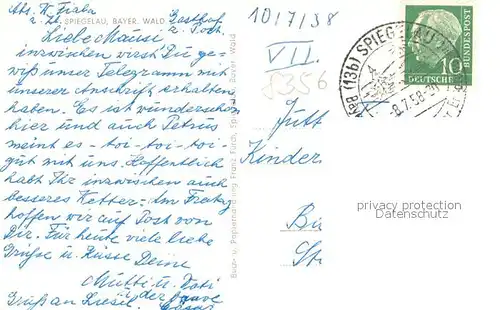 Abs. W. Fiala
z. Zt. Gasthof
SPIEGELAU, BAYER. WALD
z. Post.
Liebe Mausi!
inzwischen wirst Du ge-
wiß unser Telegramm mit
unserer Anschrift erhalten
haben. Es ist wunderschön
hier und auch Petrus
meint es - toi - toi - toi -
gut mit uns. Hoffentlich
habt Ihr inzwischen auch
besseres Wetter. Im Freitag
hoffen wir auf Post von
Dir. Für heute viele liebe
Grüße u. Küsse Deine
Mutti u. Vati
Gruß an Liesel. u. der
Buch- u. Papierhandlung Franz Fürch, Spiegelau, Bayer. Wald
10/7/38
VII.
8356
(13b) SPIEGELAU
-8.7.58
DEUTSCHE
BUNDESPOST
10
Jutt
Kinder
Bi
St
privacy protection
Datenschutz